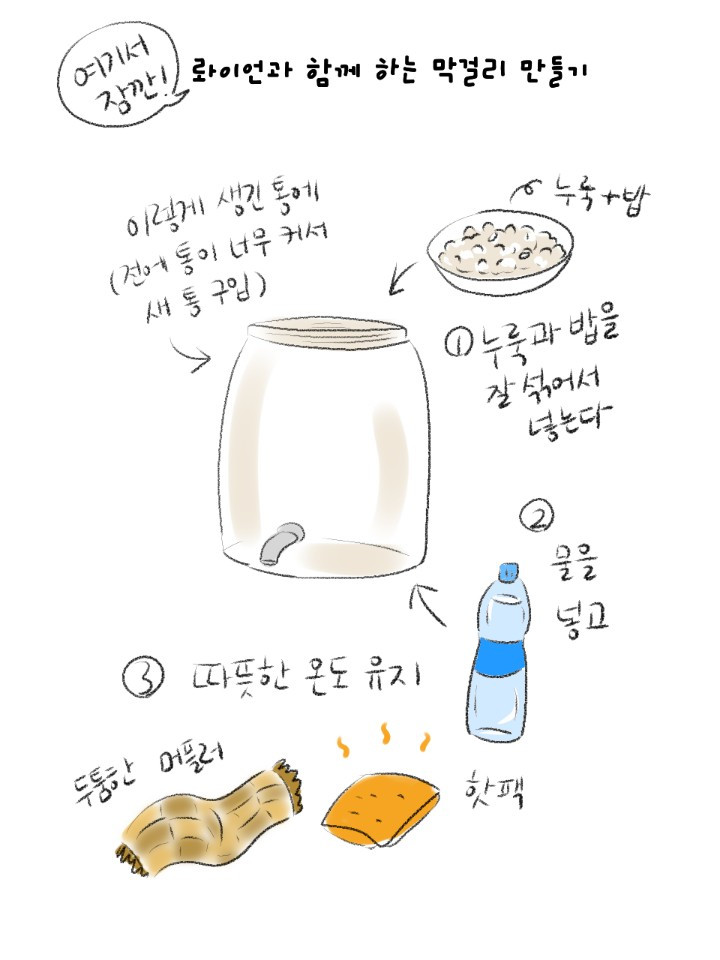 여기서
잠깐!
롸이언과 함께 하는 막걸리 만들기
이렇게 생긴 통에
(전에 통이 너무 커서
새 통 구입)
누룩+밥
① 누룩과 밥을
잘 섞어서
넣는다
②
물을
넣고
③ 따뜻한 온도 유지
두툼한 머플러
핫팩